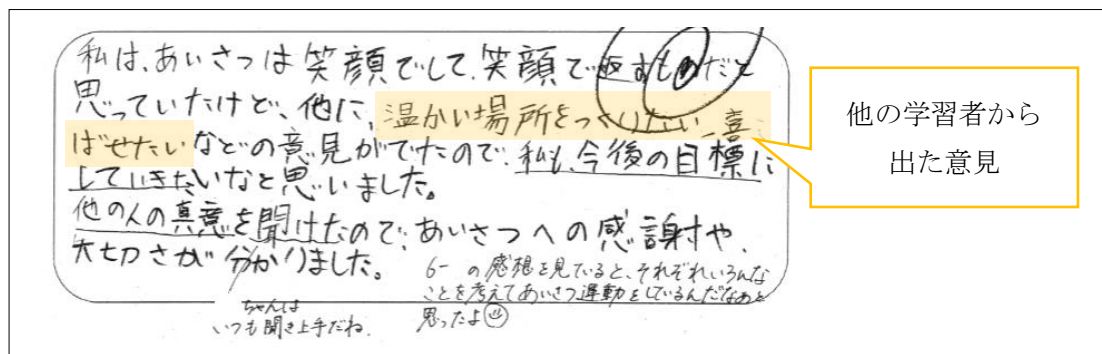 私は、あいさつは笑顔でして、笑顔で返すものだと
思っていたけど、他に、温かい場所をつくりたい、喜
ばせたいなどの意見がでたので、私も、今後の目標に
していきたいなと思いました。
他の人の真意を聞けたので、あいさつへの感謝や、
大切さが分かりました。
ちゃんは
いつも聞き上手だね。
6-の感想を見ていると、それぞれいろんな
ことを考えてあいさつ運動をしているんだなあと
思ったよ
他の学習者から
出た意見